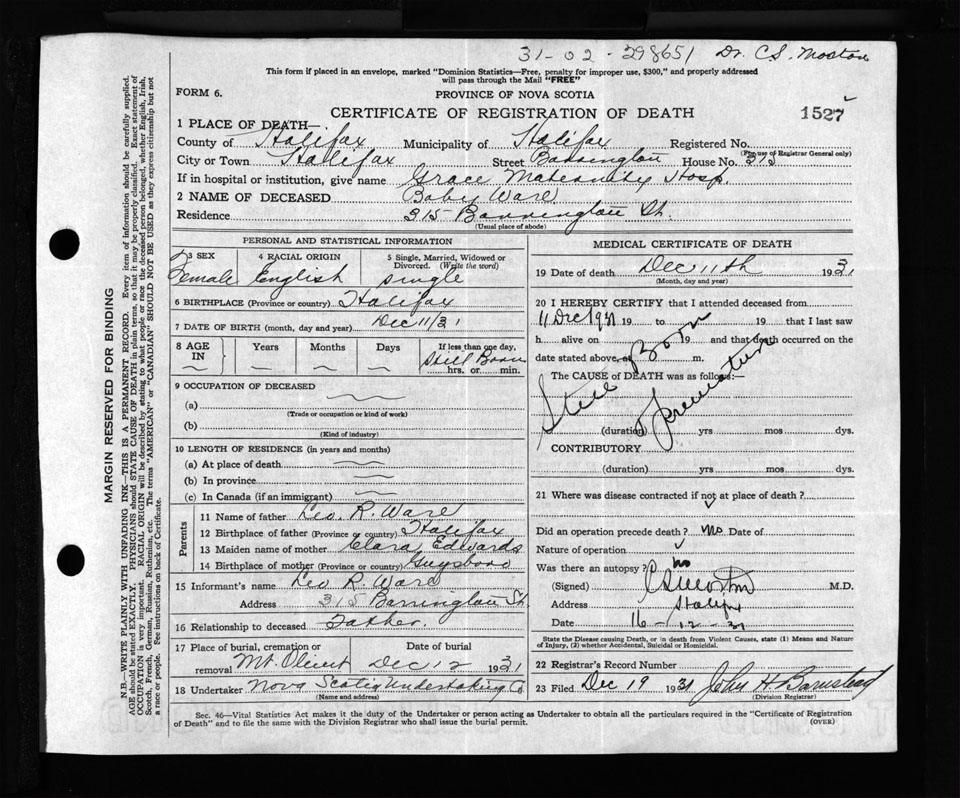 31-02-298651 Dr. C.S. Morton
This form if placed in an envelope, marked "Dominion Statistics—Free, penalty for improper use, $300," and properly addressed
will pass through the Mail "FREE"
FORM 6.
PROVINCE OF NOVA SCOTIA
CERTIFICATE OF REGISTRATION OF DEATH
1527
1 PLACE OF DEATH—
County of Halifax Municipality of Halifax Registered No.
(For use of Registrar General only)
City or Town Halifax Street Barrington House No.
If in hospital or institution, give name Grace Maternity Hosp.
2 NAME OF DECEASED Baby Ware
Residence 315 Barrington St.
(Usual place of abode)
PERSONAL AND STATISTICAL INFORMATION
3 SEX 4 RACIAL ORIGIN 5 Single, Married, Widowed or
Divorced. (Write the word)
Female English single
6 BIRTHPLACE (Province or country) Halifax
7 DATE OF BIRTH (month, day and year) Dec 11/31
8 AGE IN Years Months Days If less than one day,
Still Born
hrs. or min.
9 OCCUPATION OF DECEASED
(a)
(Trade or occupation or kind of work)
(b)
(Kind of industry)
10 LENGTH OF RESIDENCE (in years and months)
(a) At place of death
(b) In province
(c) In Canada (if an immigrant)
Parents
11 Name of father Leo. R. Ware
12 Birthplace of father (Province or country) Halifax
13 Maiden name of mother Clara Edwards
14 Birthplace of mother (Province or country) Guysboro
15 Informant's name Leo R. Ware
Address 315 Barrington St.
16 Relationship to deceased Father.
17 Place of burial, cremation or removal Mt. Olivet Date of burial Dec 12 1931
18 Undertaker Nova Scotia Undertaking Co.
(Name and address)
MEDICAL CERTIFICATE OF DEATH
19 Date of death Dec 11th 1931
(Month, day and year)
20 I HEREBY CERTIFY that I attended deceased from
11 Dec 1931 19 to 19 that I last saw
h alive on 19 and that death occurred on the
date stated above at m.
The CAUSE of DEATH was as follows:—
Still Born
Premature
(duration) yrs mos dys.
CONTRIBUTORY
(duration) yrs mos dys.
21 Where was disease contracted if not at place of death?
Did an operation precede death? No Date of
Nature of operation
Was there an autopsy? No
(Signed) C S Morton M.D.
Address Halifax
Date 16-12-31
State the Disease causing Death, or in death from Violent Causes, state (1) Means and Nature
of Injury, (2) whether Accidental, Suicidal or Homicidal.
22 Registrar's Record Number
23 Filed Dec 19 1931 John H Barnstead
(Division Registrar)
Sec. 46—Vital Statistics Act makes it the duty of the Undertaker or person acting as Undertaker to obtain all the particulars required in the "Certificate of Registration
of Death" and to file the same with the Division Registrar who shall issue the burial permit.
(OVER)
MARGIN RESERVED FOR BINDING
N.B.—WRITE PLAINLY WITH UNFADING INK—THIS IS A PERMANENT RECORD. Every item of information should be carefully supplied.
AGE should be stated EXACTLY. PHYSICIANS should STATE CAUSE OF DEATH in plain terms, so that it may be properly classified. Exact statement of
OCCUPATION is very important. RACIAL ORIGIN will be described by stating to what people or race the deceased person belonged, whether English, Irish,
Scotch, French, German, Russian, Ruthenian, etc. The terms "AMERICAN" or "CANADIAN" SHOULD NOT BE USED as they express citizenship but not
a race or people. See instructions on back of Certificate.